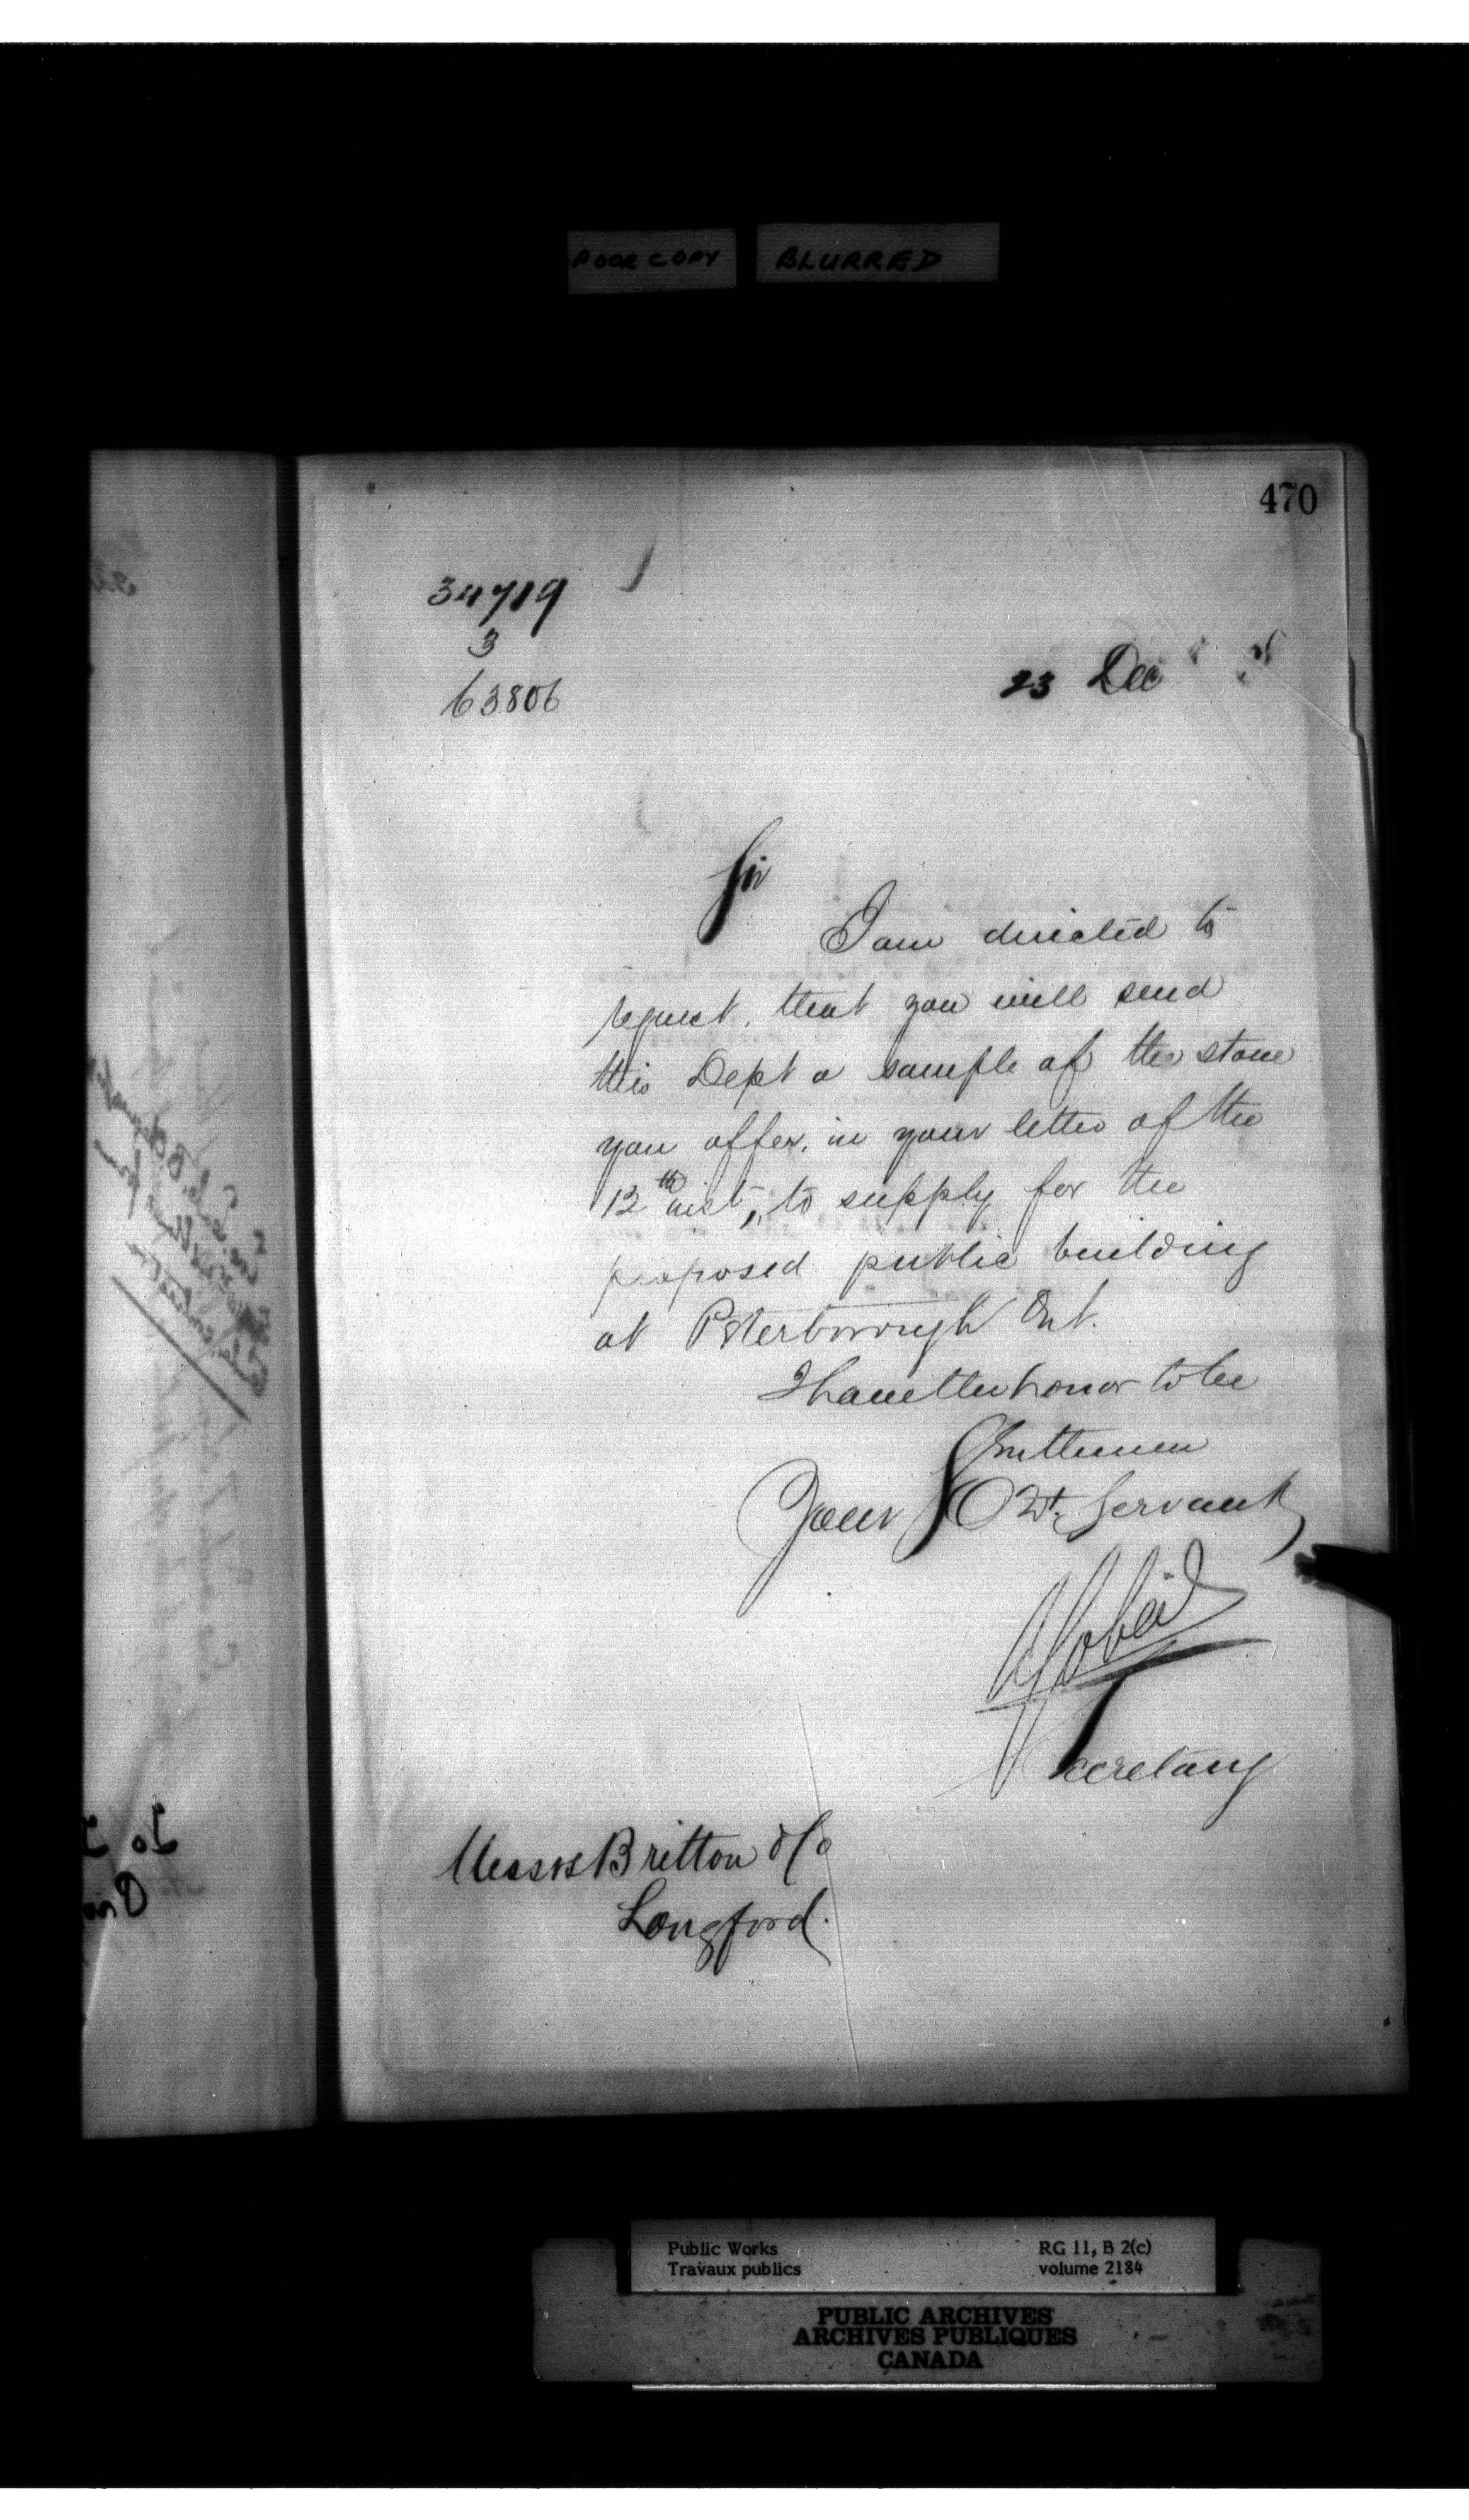 POOR COPY BLURRED
470
34719
3
63806
23 Dec
Sir
I am directed to
request, that you will send
this Dept a sample of the stone
you offer, in your letter of the
12th inst, to supply for the
proposed public building
at Peterborough Ont.
I have the honor to be
Gentlemen
Your Obt. Servant
Secretary
Messrs Britton & Co
Longford.
Public Works RG 11, B 2(c)
Travaux publics volume 2184
PUBLIC ARCHIVES
ARCHIVES PUBLIQUES
CANADA